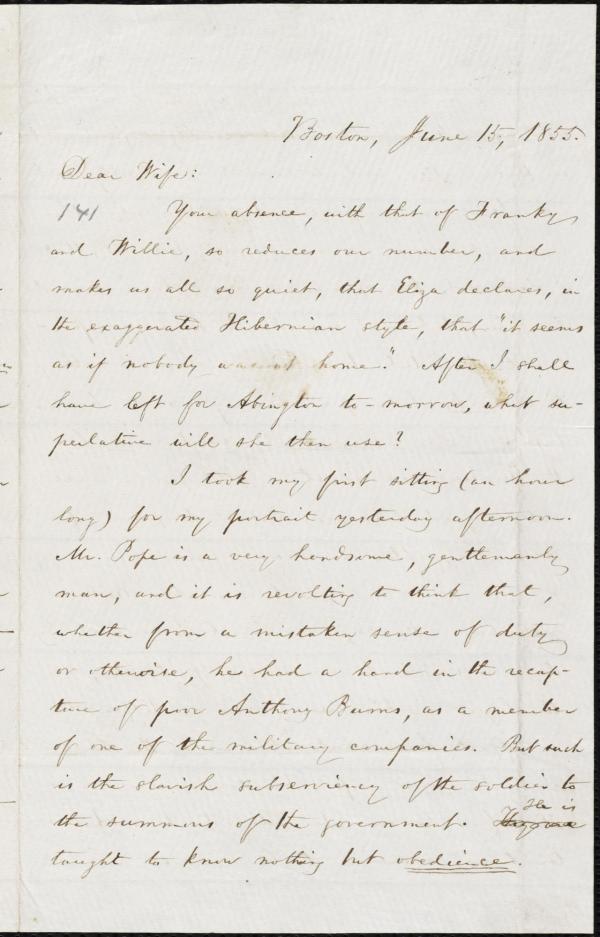 Boston, June 15, 1855.
Dear Wife:
141 Your absence, with that of Franky
and Willie, so reduces our number, and
makes us all so quiet, that Eliza declares, in
the exaggerated Hibernian style, that "it seems
as if nobody was at home." After I shall
have left for Abington to-morrow, what su-
perlative will she then use?
I took my first sitting (an hour
long) for my portrait yesterday afternoon.
Mr. Pope is a very handsome, gentlemanly
man, and it is revolting to think that,
whether from a mistaken sense of duty
or otherwise, he had a hand in the recap-
ture of poor Anthony Burns, as a member
of one of the military companies. But such
is the slavish subserviency of the soldier to
the summons of the government. They are He is
taught to know nothing but obedience.